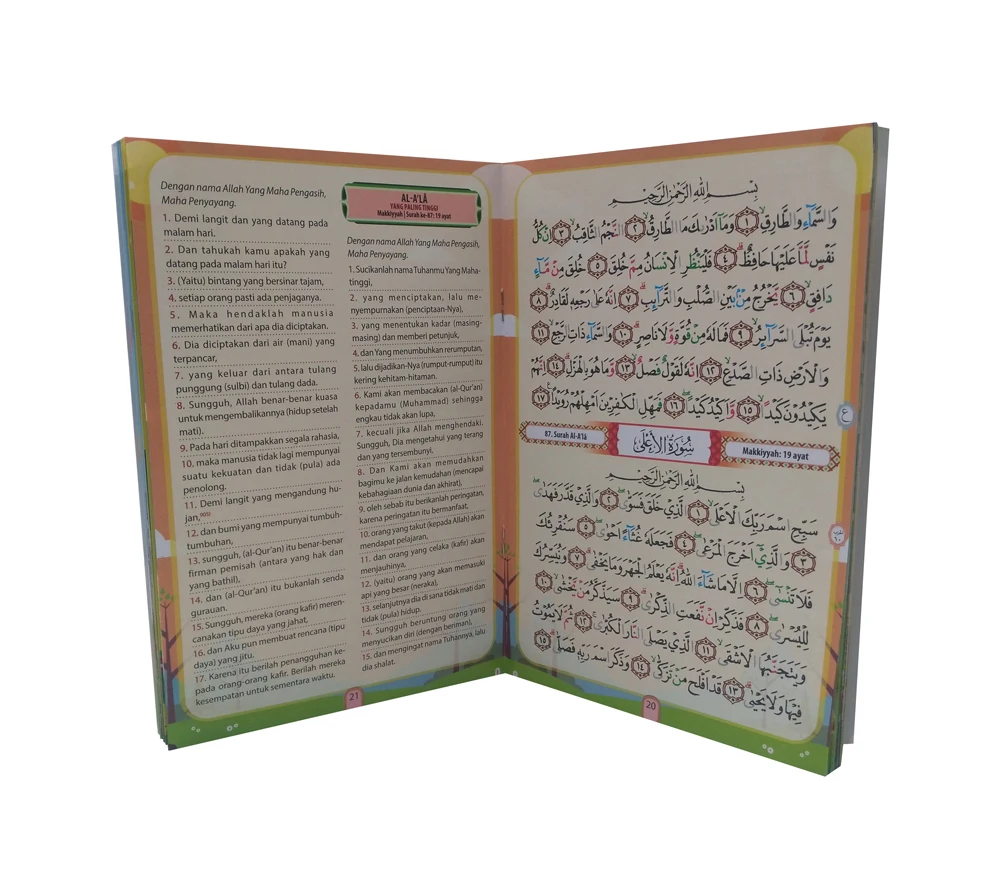 بِسْمِ اللهِ الرَّحْمٰنِ الرَّحِيْمِ
وَالسَّمَآءِ وَالطَّارِقِۙ ١ وَمَآ اَدْرٰىكَ مَا الطَّارِقُۙ ٢ النَّجْمُ الثَّاقِبُۙ ٣ اِنْ كُلُّ
نَفْسٍ لَّمَّا عَلَيْهَا حَافِظٌۗ ٤ فَلْيَنْظُرِ الْاِنْسَانُ مِمَّ خُلِقَ ٥ خُلِقَ مِنْ مَّآءٍ
دَافِقٍۙ ٦ يَّخْرُجُ مِنْۢ بَيْنِ الصُّلْبِ وَالتَّرَآىِٕبِۗ ٧ اِنَّهٗ عَلٰى رَجْعِهٖ لَقَادِرٌۗ ٨
يَوْمَ تُبْلَى السَّرَآىِٕرُۙ ٩ فَمَا لَهٗ مِنْ قُوَّةٍ وَّلَا نَاصِرٍۗ ١٠ وَالسَّمَآءِ ذَاتِ الرَّجْعِۙ ١١
وَالْاَرْضِ ذَاتِ الصَّدْعِۙ ١٢ اِنَّهٗ لَقَوْلٌ فَصْلٌۙ ١٣ وَّمَا هُوَ بِالْهَزْلِۗ ١٤ اِنَّهُمْ
يَكِيْدُوْنَ كَيْدًاۙ ١٥ وَّاَكِيْدُ كَيْدًاۖ ١٦ فَمَهِّلِ الْكٰفِرِيْنَ اَمْهِلْهُمْ رُوَيْدًا ١٧
ع
87. Surah Al-A'lā
سُوْرَةُ الْاَعْلٰى
Makkiyyah: 19 ayat
بِسْمِ اللهِ الرَّحْمٰنِ الرَّحِيْمِ
سَبِّحِ اسْمَ رَبِّكَ الْاَعْلَىۙ ١ الَّذِيْ خَلَقَ فَسَوّٰىۖ ٢ وَالَّذِيْ قَدَّرَ فَهَدٰىۖ
٣ وَالَّذِيْٓ اَخْرَجَ الْمَرْعٰىۖ ٤ فَجَعَلَهٗ غُثَآءً اَحْوٰىۖ ٥ سَنُقْرِئُكَ
فَلَا تَنْسٰىۖ ٦ اِلَّا مَا شَآءَ اللهُۗ اِنَّهٗ يَعْلَمُ الْجَهْرَ وَمَا يَخْفٰىۗ ٧ وَنُيَسِّرُكَ
لِلْيُسْرٰىۖ ٨ فَذَكِّرْ اِنْ نَّفَعَتِ الذِّكْرٰىۗ ٩ سَيَذَّكَّرُ مَنْ يَّخْشٰىۙ ١٠
وَيَتَجَنَّبُهَا الْاَشْقَىۙ ١١ الَّذِيْ يَصْلَى النَّارَ الْكُبْرٰىۚ ١٢ ثُمَّ لَا يَمُوْتُ
فِيْهَا وَلَا يَحْيٰىۗ ١٣ قَدْ اَفْلَحَ مَنْ تَزَكّٰىۙ ١٤ وَذَكَرَ اسْمَ رَبِّهٖ فَصَلّٰىۗ ١٥
20
Dengan nama Allah Yang Maha Pengasih,
Maha Penyayang.
1. Demi langit dan yang datang pada
malam hari.
2. Dan tahukah kamu apakah yang
datang pada malam hari itu?
3. (Yaitu) bintang yang bersinar tajam,
4. setiap orang pasti ada penjaganya.
5. Maka hendaklah manusia
memerhatikan dari apa dia diciptakan.
6. Dia diciptakan dari air (mani) yang
terpancar,
7. yang keluar dari antara tulang
punggung (sulbi) dan tulang dada.
8. Sungguh, Allah benar-benar kuasa
untuk mengembalikannya (hidup setelah
mati).
9. Pada hari ditampakkan segala rahasia,
10. maka manusia tidak lagi mempunyai
suatu kekuatan dan tidak (pula) ada
penolong.
11. Demi langit yang mengandung hu-
jan,
12. dan bumi yang mempunyai tumbuh-
tumbuhan,
13. sungguh, (al-Qur'an) itu benar-benar
firman pemisah (antara yang hak dan
yang bathil),
14. dan (al-Qur'an) itu bukanlah senda
gurauan.
15. Sungguh, mereka (orang kafir) meren-
canakan tipu daya yang jahat,
16. dan Aku pun membuat rencana (tipu
daya) yang jitu.
17. Karena itu berilah penangguhan ke-
pada orang-orang kafir. Berilah mereka
kesempatan untuk sementara waktu.
AL-A'LĀ
YANG PALING TINGGI
Makkiyyah | Surah ke-87: 19 ayat
Dengan nama Allah Yang Maha Pengasih,
Maha Penyayang.
1. Sucikanlah nama Tuhanmu Yang Maha-
tinggi,
2. yang menciptakan, lalu me-
nyempurnakan (penciptaan-Nya),
3. yang menentukan kadar (masing-
masing) dan memberi petunjuk,
4. dan Yang menumbuhkan rerumputan,
5. lalu dijadikan-Nya (rumput-rumput) itu
kering kehitam-hitaman.
6. Kami akan membacakan (al-Qur'an)
kepadamu (Muhammad) sehingga
engkau tidak akan lupa,
7. kecuali jika Allah menghendaki.
Sungguh, Dia mengetahui yang terang
dan yang tersembunyi.
8. Dan Kami akan memudahkan
bagimu ke jalan kemudahan (mencapai
kebahagiaan dunia dan akhirat).
9. oleh sebab itu berikanlah peringatan,
karena peringatan itu bermanfaat,
10. orang yang takut (kepada Allah) akan
mendapat pelajaran,
11. dan orang yang celaka (kafir) akan
menjauhinya,
12. (yaitu) orang yang akan memasuki
api yang besar (neraka),
13. selanjutnya dia di sana tidak mati dan
tidak (pula) hidup.
14. Sungguh beruntung orang yang
menyucikan diri (dengan beriman),
15. dan mengingat nama Tuhannya, lalu
dia shalat.
21